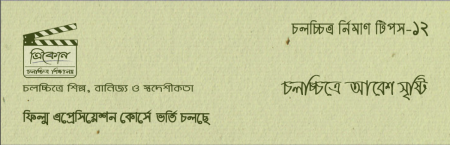 চলচ্চিত্র নির্মাণ টিপস-১২
ত্রিকোন
চলচ্চিত্র শিক্ষালয়
চলচ্চিত্রে শিল্প, বানিজ্য ও স্বদেশীকতা
চলচ্চিত্রে আবেশ সৃষ্টি
ফিল্ম এপ্রেসিয়েশন কোর্সে ভর্তি চলছে